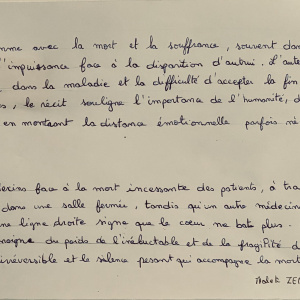 mme avec la mort et la souffrance, souvent dan
l'impuissance face à la disparition d'autrui. L'aute
dans la maladie et la difficulté d'accepter la fin
s, le récit souligne l'importance de l'humanité, d
en montrant la distance émotionnelle parfois né
decins face à la mort incessante des patients, à tra
dans une salle fermée, tandis qu'un autre médecin
ne ligne droite signe que le cœur ne bats plus.
moigne du poids de l'inéluctable et de la fragilité d
irréversible et le silence pesant qui accompagne la mort